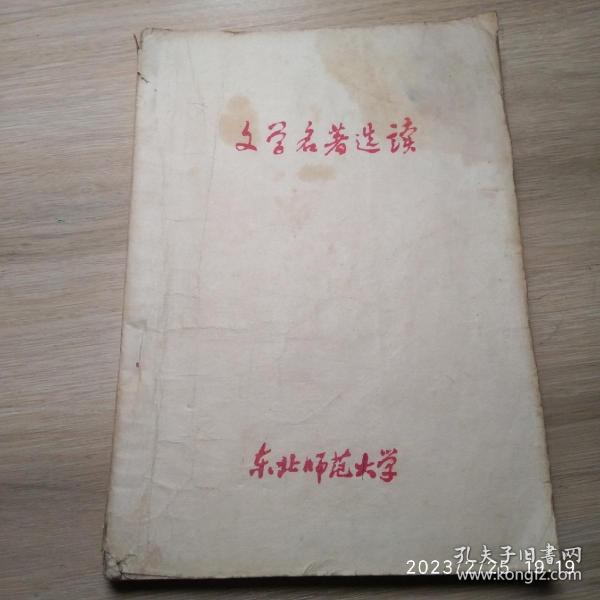 文学名著选读
东北师范大学
2023/2/25 19:19
孔夫子旧書网
www.kongfz.com